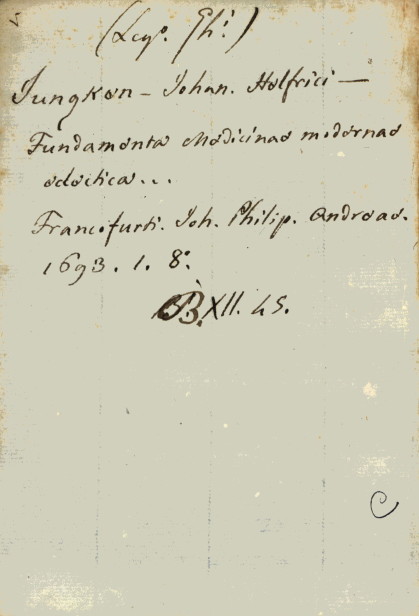 (Leg.o Gh.i)
Jungken - Johan. Helfrici -
Fundamenta Medicinae modernae
eclectica...
Francofurti. Joh. Philip. Andreae.
1693. 1. 8.o
B. XII. 45.
C